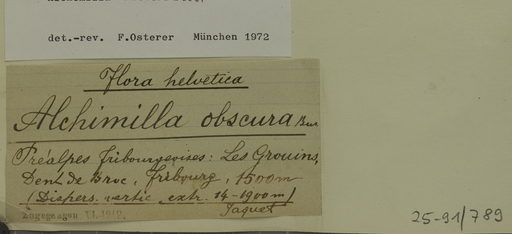 det.-rev. F.Osterer München 1972
Flora helvetica
Alchimilla obscura Bus
Préalpes fribourgeoises: Les Grouins,
Dent de Broc, Fribourg, 1500m
(Dispers. vertic. extr. 14-1900m)
Jaquet
25-91/789